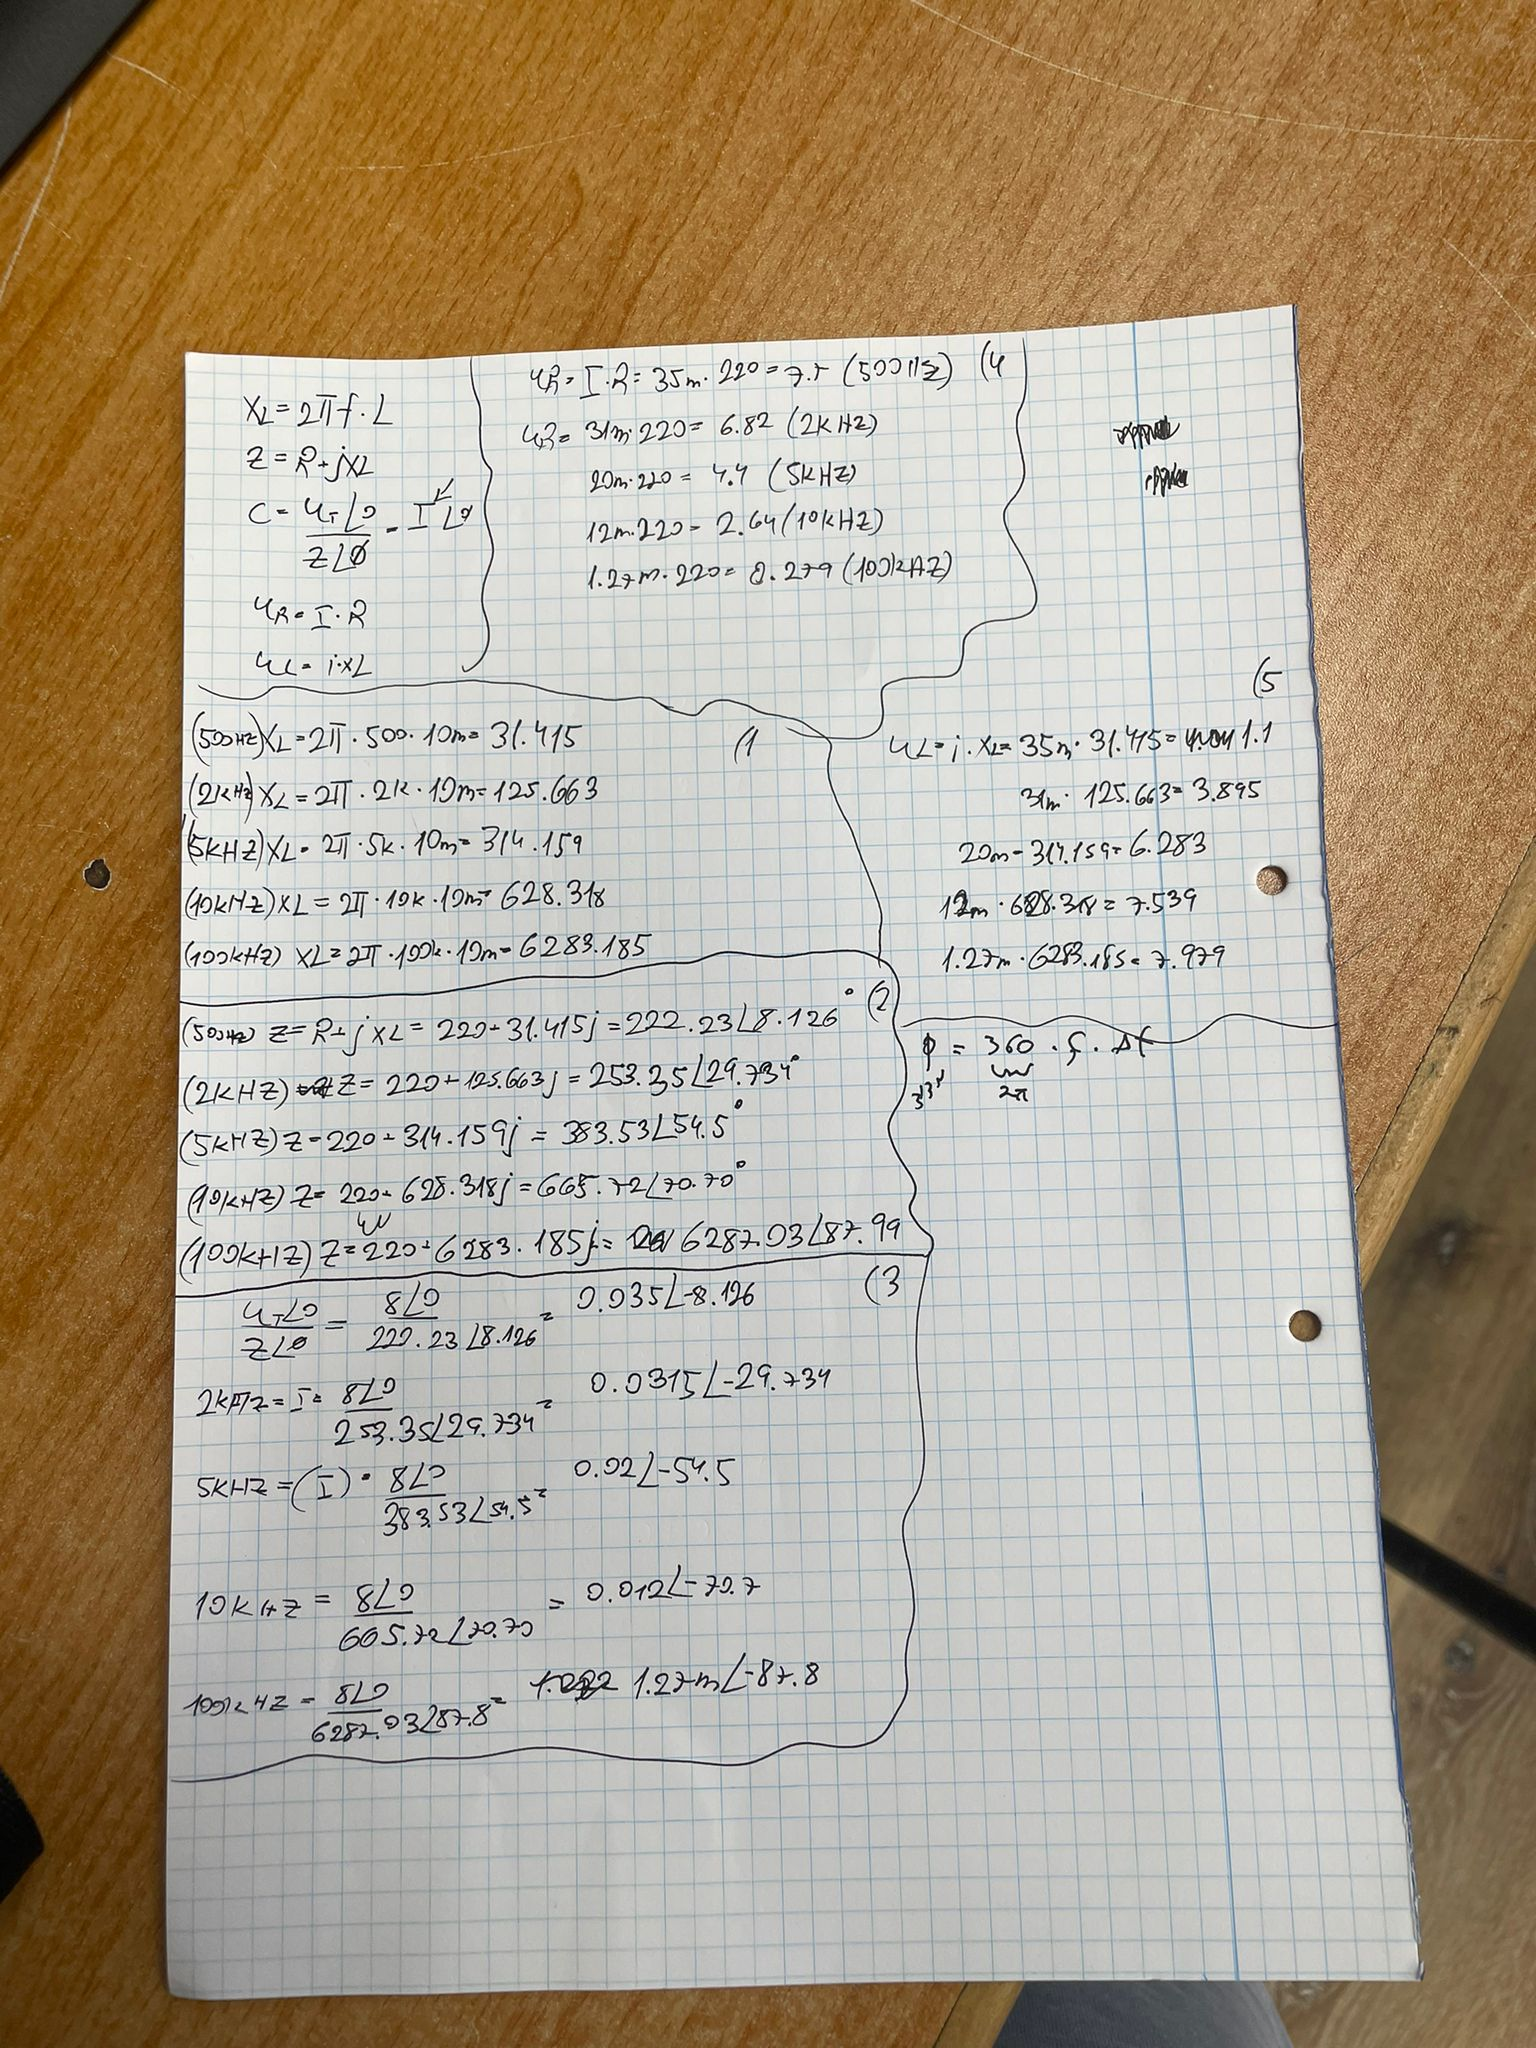 XL=2πf·L
Z=R+jXL
C=UT∠0/Z∠Ø=I∠Ø
UR=I·R
UL=i·XL
UR=I·R=35m·220=7.7 (500Hz) (4
UR=31m·220=6.82 (2KHZ)
20m·220=4.4 (5KHZ)
12m·220=2.64 (10kHZ)
1.27m·220=0.279 (100kHZ)
(500HZ) XL=2π·500·10m=31.415 (1
(2KHZ) XL=2π·2k·10m=125.663
(5KHZ) XL=2π·5k·10m=314.159
(10kHZ) XL=2π·10k·10m=628.318
(100kHZ) XL=2π·100k·10m=6283.185
(5
UL=i·XL=35m·31.415=1.1
31m·125.663=3.895
20m·314.159=6.283
12m·628.318=7.539
1.27m·6283.185=7.979
(500HZ) Z=R+jXL=220+31.415j=222.23∠8.126° (2
(2KHZ) Z=220+125.663j=253.35∠29.734°
(5KHZ) Z=220+314.159j=383.53∠54.5°
(10kHZ) Z=220+628.318j=665.72∠70.70°
(100kHZ) Z=220+6283.185j=6287.03∠87.99
ϕ=360·f·Δt
2π
UT∠0/Z∠Ø=8∠0/222.23∠8.126=0.035∠-8.126 (3
2kHz=I=8∠0/253.35∠29.734=0.0315∠-29.734
5KHZ=(I)=8∠0/383.53∠54.5=0.02∠-54.5
10KHZ=8∠0/665.72∠70.70=0.012∠-70.7
100kHZ=8∠0/6287.03∠87.8=1.27m∠-87.8